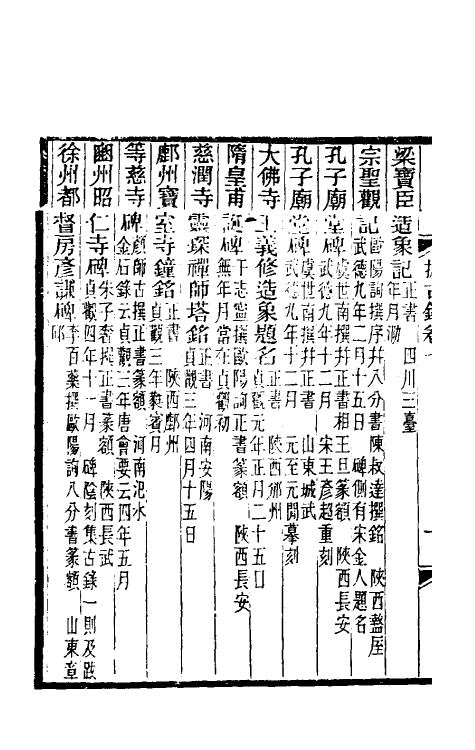 梁寶臣造象記正書 四川三臺
年月泐
宗聖觀記歐陽詢撰序幷八分書陳叔達撰銘 陝西盩厔
武德九年二月十五日 碑側有宋金人題名
孔子廟堂碑虞世南撰幷正書相王旦篆額 陝西長安
武德九年十二月 宋王彥超重刻
孔子廟堂碑虞世南撰幷正書 山東城武
武德九年十二月 元至元間摹刻
大佛寺王義修造象題名正書 陝西邠州
貞觀元年正月二十五日
隋皇甫誕碑于志寧撰歐陽詢正書篆額 陝西長安
無年月當在貞觀初
慈潤寺靈琛禪師塔銘正書 河南安陽
貞觀三年四月十五日
鄜州寶室寺鐘銘正書 陝西鄜州
貞觀三年
等慈寺碑顏師古撰正書篆額 河南汜水
金石錄云貞觀二年唐會要云四年五月
豳州昭仁寺碑朱子奢撰正書篆額 陝西長武
貞觀四年十一月 碑陰刻集古錄一則及跋
徐州都督房彥謙碑李百藥撰歐陽詢八分書篆額 山東章
邱